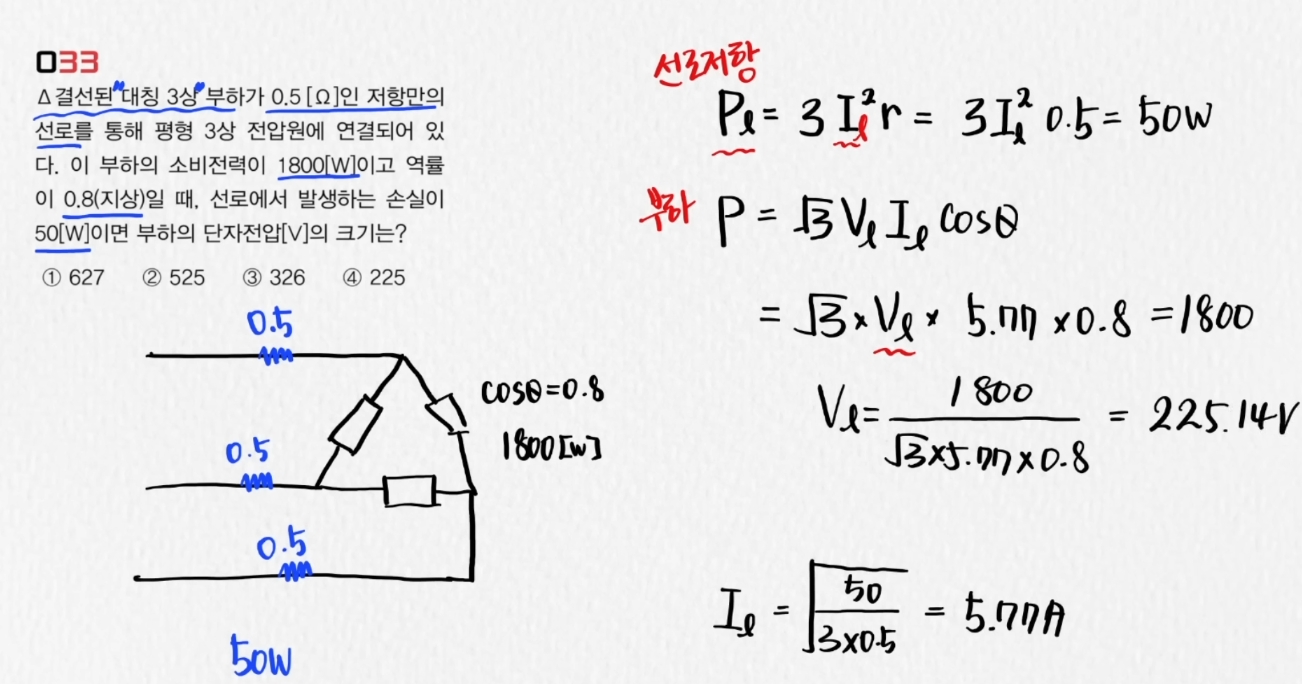 033
Δ결선된 대칭 3상 부하가 0.5 [Ω]인 저항만의
선로를 통해 평형 3상 전압원에 연결되어 있
다. 이 부하의 소비전력이 1800[W]이고 역률
이 0.8(지상)일 때, 선로에서 발생하는 손실이
50[W]이면 부하의 단자전압[V]의 크기는?
① 627 ② 525 ③ 326 ④ 225
0.5
0.5
0.5
cosθ=0.8
1800[w]
50W
선로저항
Pℓ = 3Iℓ²r = 3Iℓ² 0.5 = 50W
부하 P = √3 Vℓ Iℓ cosθ
= √3 × Vℓ × 5.77 × 0.8 = 1800
Vℓ = 1800 / √3×5.77×0.8 = 225.14V
Iℓ = √50 / 3×0.5 = 5.77A